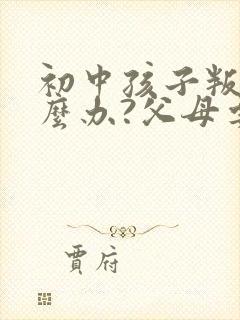 初中孩子叛
麼办?父母
賈府